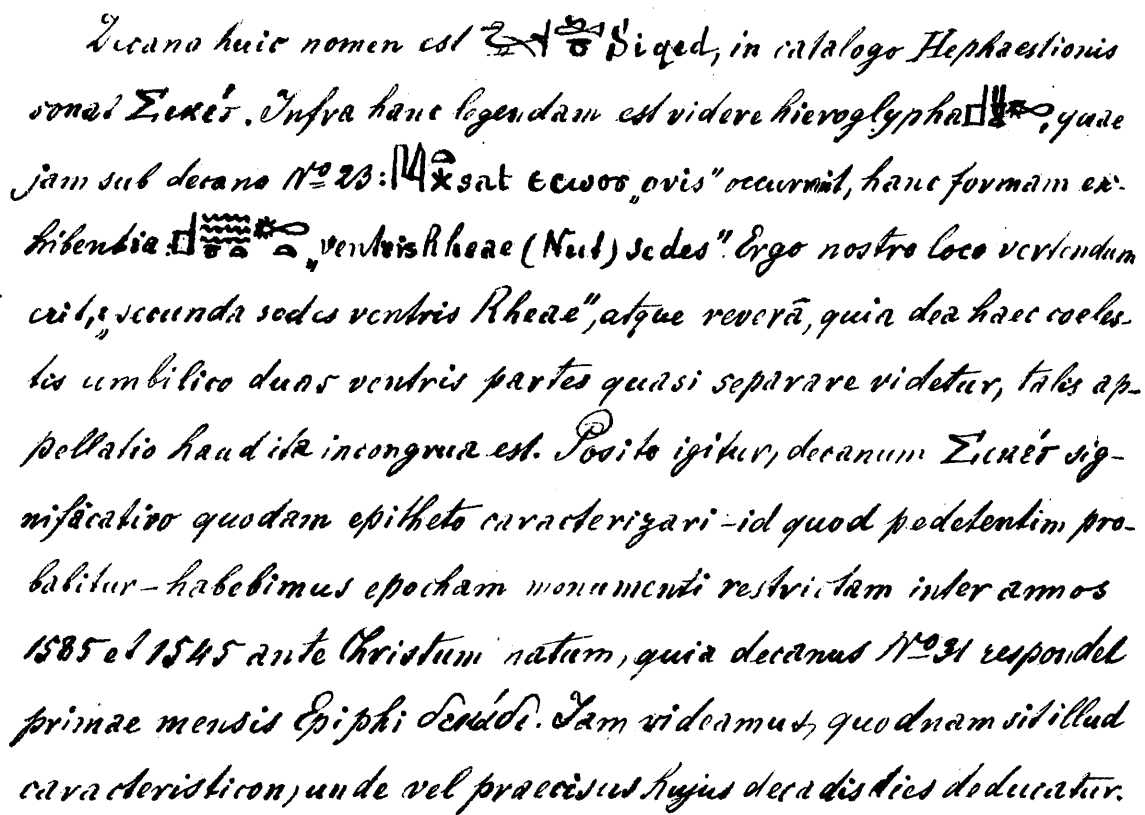 Decano huic nomen est Siqed, in catalogo Hephaestionis
sonat Σικέτ. Infra hanc legendam est videre hieroglypha, quae
jam sub decano Nº 23: sat ⲉⲥⲱⲟⲩ „ovis” occurrunt, hanc formam ex-
hibentia: „ventris Rheae (Nut) sedes”. Ergo nostro loco vertendum
erit, „secunda sedes ventris Rheae”, atque reverā, quia dea haec coeles-
tis umbilico duas ventris partes quasi separare videtur, talis ap-
pellatio haud ita incongrua est. Posito igitur, decanum Σικέτ sig-
nificativo quodam epitheto caracterizari – id quod pedetentim pro-
babitur – habebimus epocham monumenti restrictam inter annos
1585 et 1545 ante Christum natum, quia decanus Nº 31 respondet
primae mensis Epiphi δεκάδι. Jam videamus, quodnam sit illud
caracteristicon, unde vel praecisus hujus decadis dies deducatur.